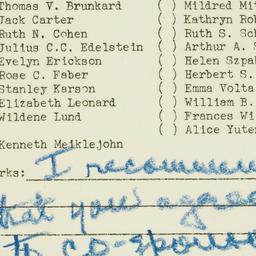 Thomas V. Brunkard ( ) Mildred Mit
Jack Carter ( ) Kathryn Rob
Ruth N. Cohen ( ) Ruth S. Sch
Julius C.C. Edelstein ( ) Arthur A. S
Evelyn Erickson ( ) Helen Szpa
Rose C. Faber ( ) Herbert S.
Stanley Karson ( ) Emma Volta
Elizabeth Leonard ( ) William B.
Wildene Lund ( ) Frances Wi
( ) Alice Yuter
Kenneth Meiklejohn
rks: I recomm
that you agree
to co-spons